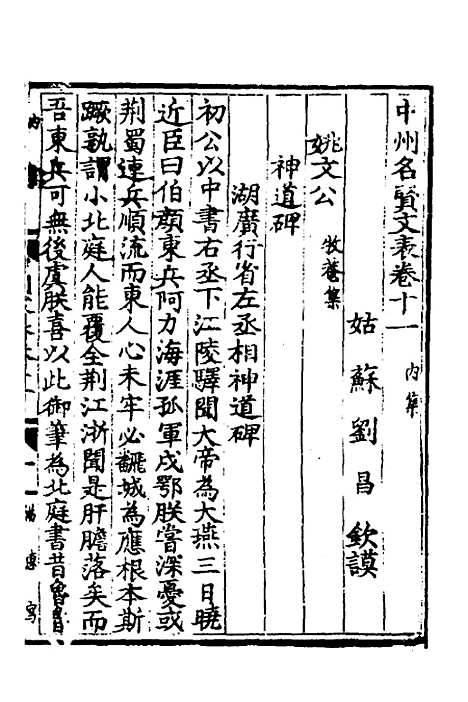 中州名賢文表卷十一 内集
姑蘇劉昌欽謨
姚文公 牧菴集
神道碑
湖廣行省左丞相神道碑
初公以中書右丞下江陵驛聞大帝為大燕三日曉
近臣曰伯顔東兵阿力海涯孤軍戍鄂朕嘗深憂或
荆蜀連兵順流而東人心未牢必翻城為應根本斯
蹶孰謂小北庭人能覆全荆江浙聞是肝膽落矣而
吾東兵可無後虞朕喜以此御筆為北庭書昔魯魯